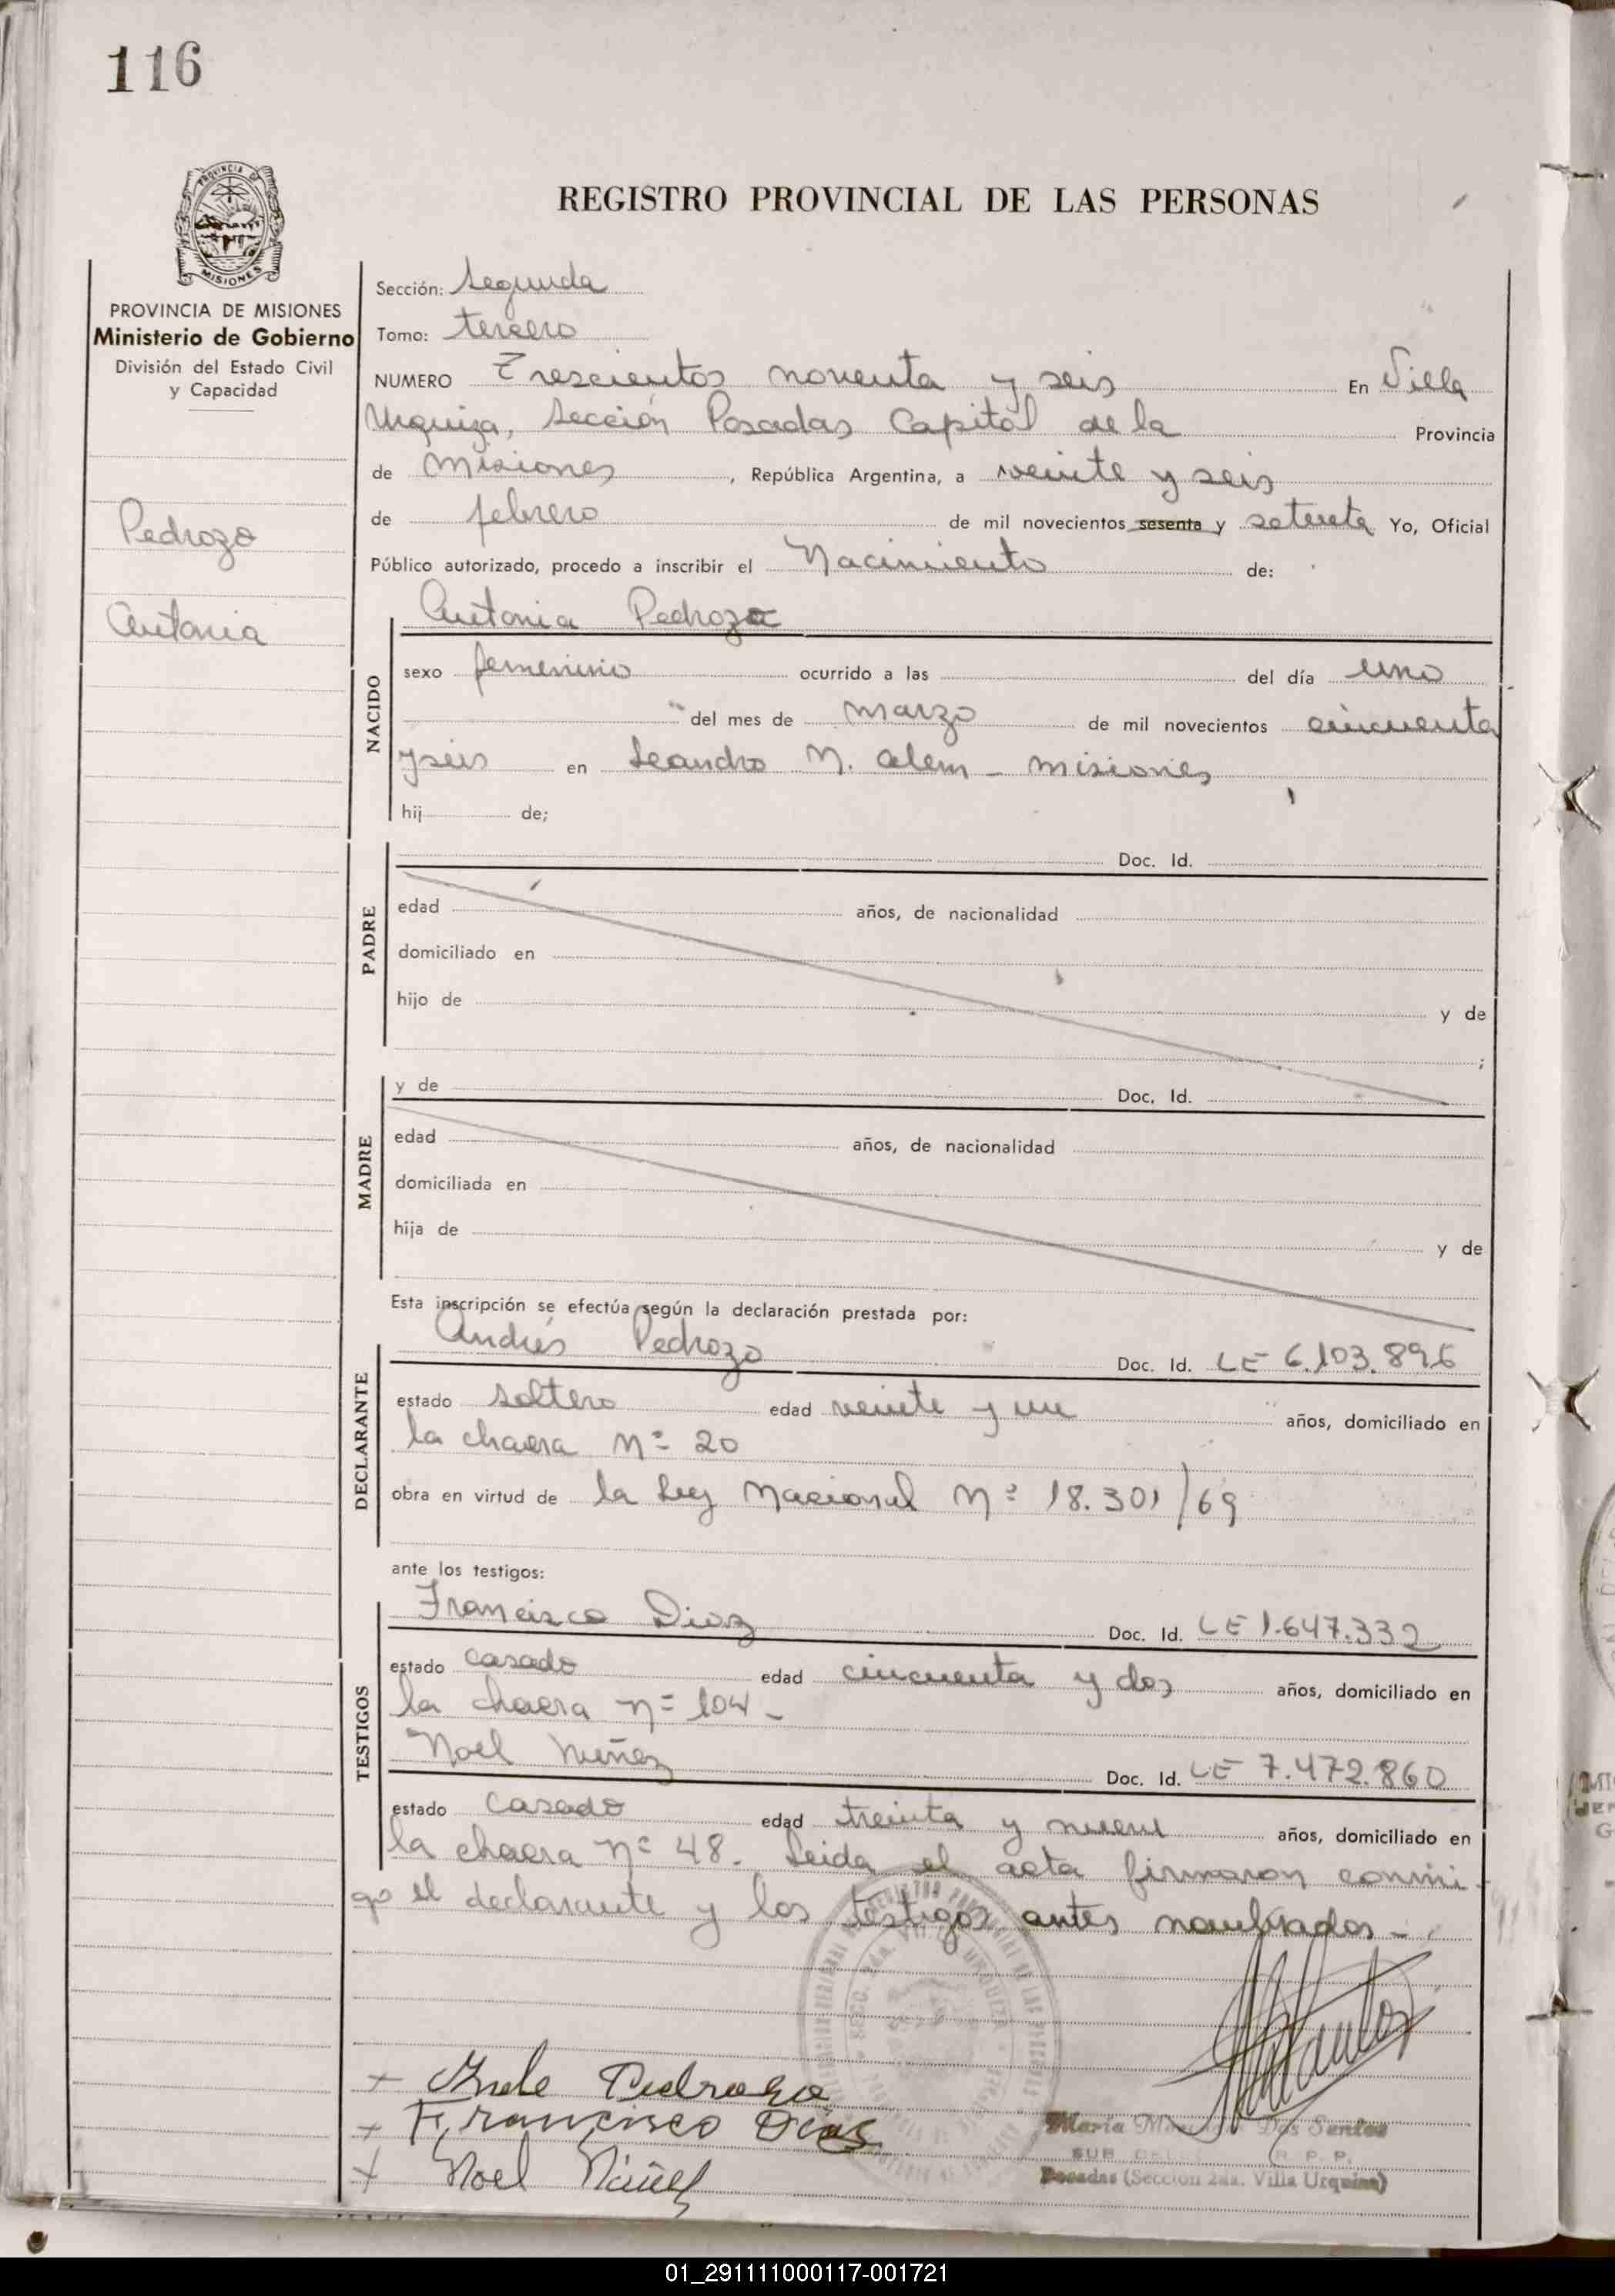 116
PROVINCIA DE
MISIONES
REGISTRO PROVINCIAL DE LAS PERSONAS
PROVINCIA DE MISIONES
Ministerio de Gobierno
División del Estado Civil
y Capacidad
Pedrozo
Antonia
Sección: Segunda
Tomo: tercero
NUMERO Trescientos noventa y seis En Villa
Urquiza, Sección Posadas Capital de la Provincia
de Misiones, República Argentina, a veinte y seis
de febrero de mil novecientos sesenta y setenta Yo, Oficial
Público autorizado, procedo a inscribir el Nacimiento de:
Antonia Pedrozo
NACIDO
sexo femenino ocurrido a las del día uno
del mes de marzo de mil novecientos cincuenta
y seis en Leandro N. Alem - Misiones
hij de;
PADRE
Doc. Id.
edad años, de nacionalidad
domiciliado en
hijo de y de
;
MADRE
y de Doc. Id.
edad años, de nacionalidad
domiciliada en
hija de y de
Esta inscripción se efectúa según la declaración prestada por:
DECLARANTE
Andrés Pedrozo Doc. Id. LE 6.103.896
estado soltero edad veinte y un años, domiciliado en
la chacra Nº 20
obra en virtud de la Ley Nacional Nº 18.301/69
ante los testigos:
TESTIGOS
Francisco Diaz Doc. Id. LE 1.647.332
estado casado edad cincuenta y dos años, domiciliado en
la chacra nº 104 -
Noel Nuñez Doc. Id. LE 7.472.860
estado casado edad treinta y nueve años, domiciliado en
la chacra nº 48. Leida el acta firmaron conmi-
go el declarante y los testigos antes nombrados -
+ Pedrozo
+ Francisco Dias
+ Noel Núñez
Maria Dos Santos
SUB R. P. P.
Posadas (Sección 2da. Villa Urquiza)
01_291111000117-001721